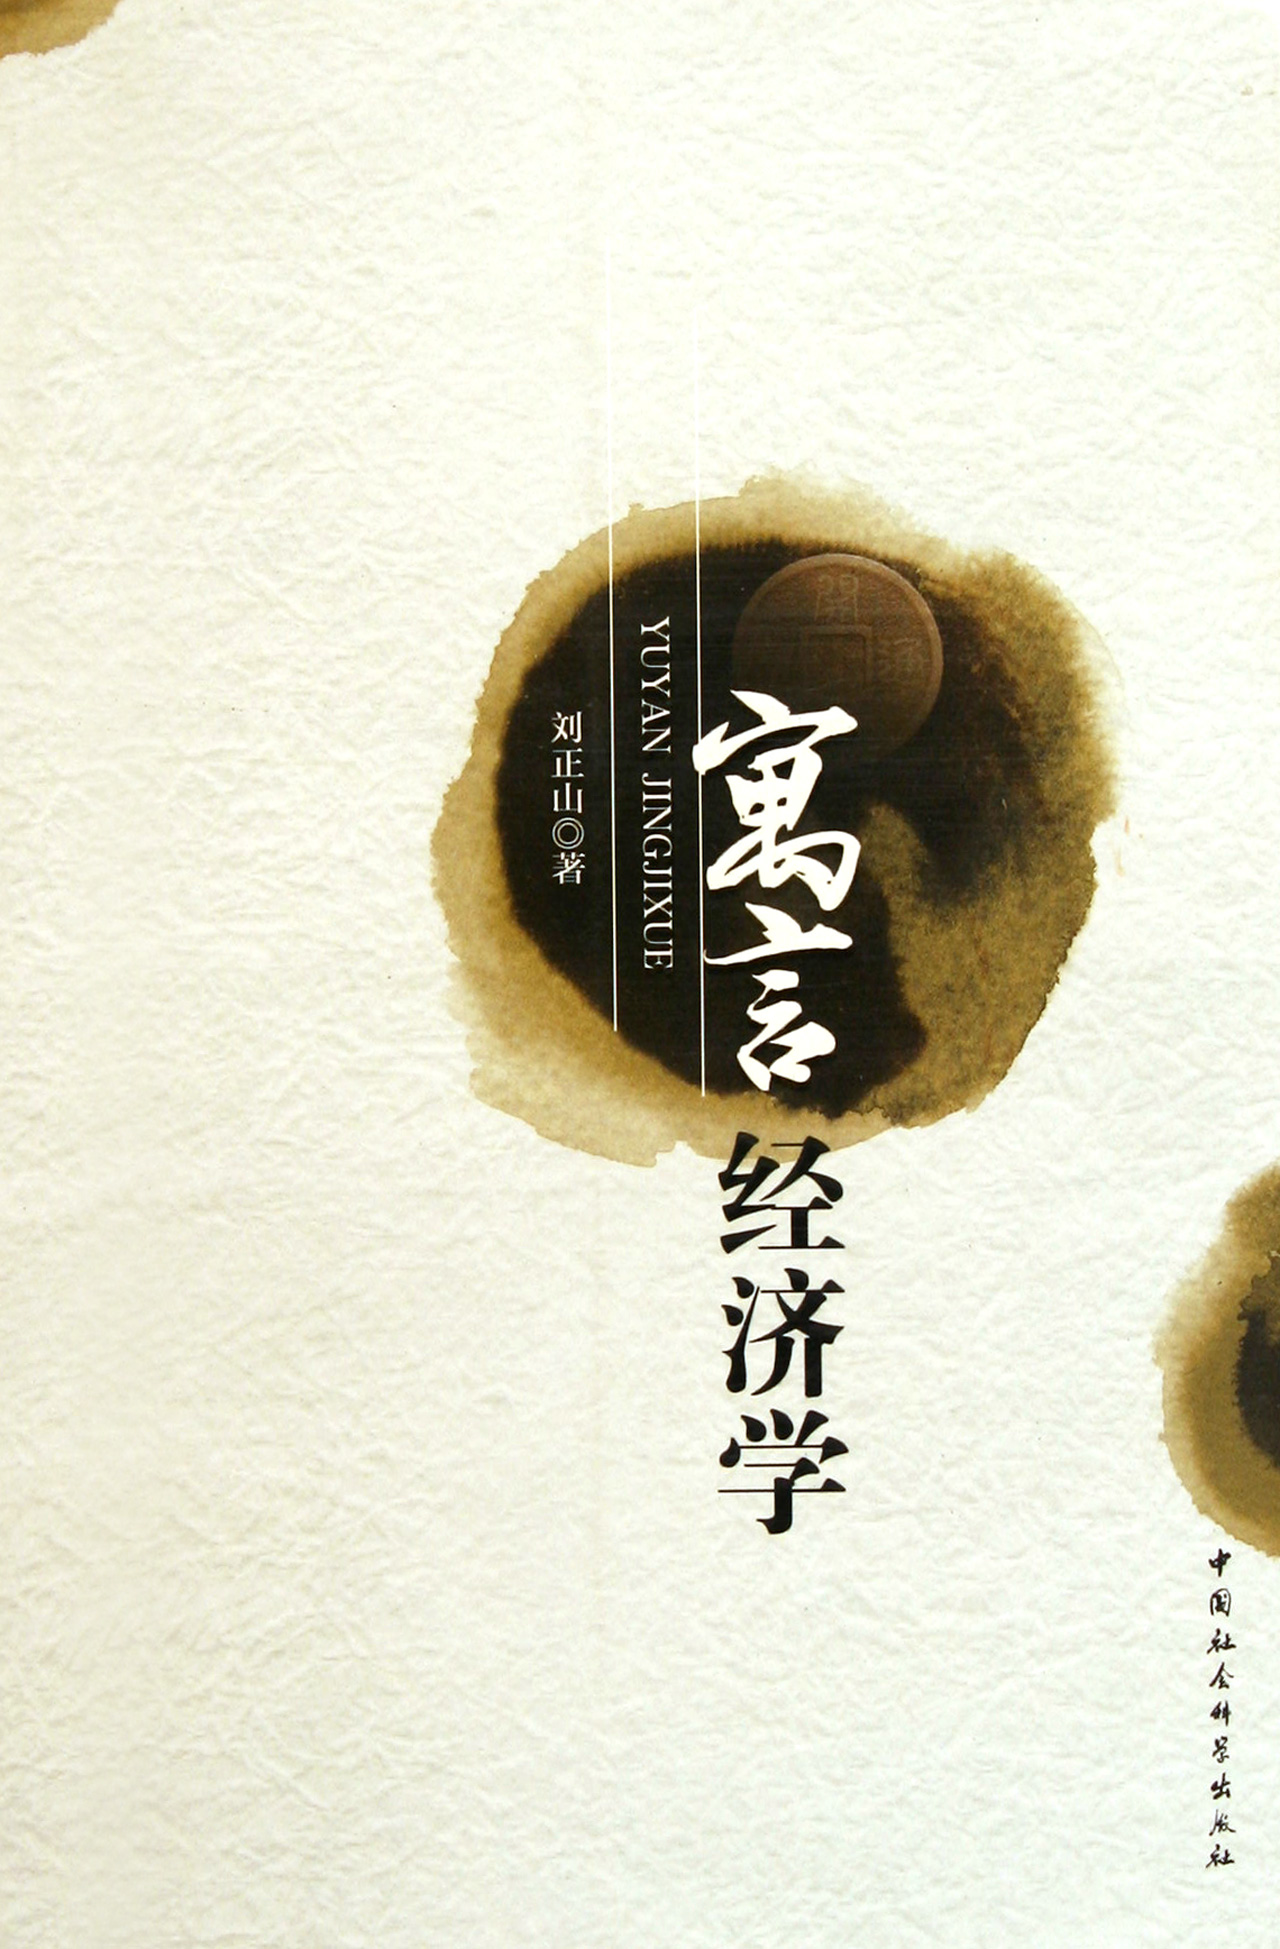 寓言
经济学
YUYAN JINGJIXUE
刘正山◎著
中国社会科学出版社